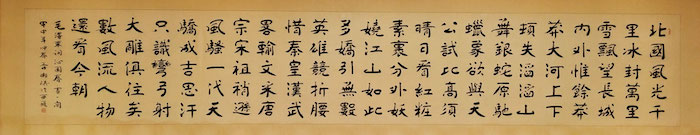 北國風光千
里冰封萬里
雪飄望長城
内外惟餘莽
莽大河上下
頓失滔滔山
舞銀蛇原馳
蠟象欲與天
公試比高須
晴日看紅粧
素裹分外妖
嬈江山如此
多嬌引無數
英雄競折腰
惜秦皇漢武
畧輸文采唐
宗宋祖稍遜
風騷一代天
驕成吉思汗
只識彎弓射
大雕俱往矣
數風流人物
還看今朝
毛澤東詞沁園春雪